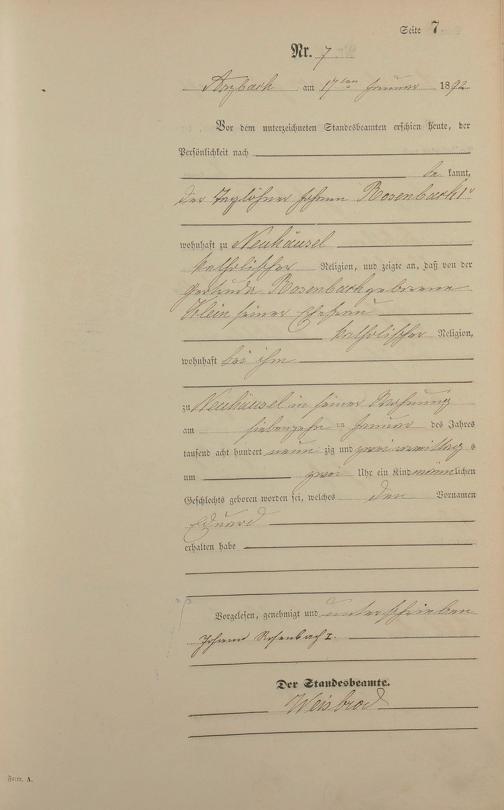 Seite 7
Nr. 7
Arzbach am 17ten Januar 1892
Vor dem unterzeichneten Standesbeamten erschien heute, der
Persönlichkeit nach
be kannt,
der Taglöhner Johann Rosenbach I.
wohnhaft zu Neuhäusel
katholischer Religion, und zeigte an, daß von der
Gertrude Rosenbach geborene
Klein seiner Ehefrau
katholischer Religion,
wohnhaft bei ihm
zu Neuhäusel in seiner Wohnung
am siebenzehn ten Januar des Jahres
tausend acht hundert neun zig und zwei vormittags
um zwei Uhr ein Kind männlichen
Geschlechts geboren worden sei, welches den Vornamen
Eduard
erhalten habe
Vorgelesen, genehmigt und unterschrieben
Johann Rosenbach I.
Der Standesbeamte.
Weisbrod
Form. A.